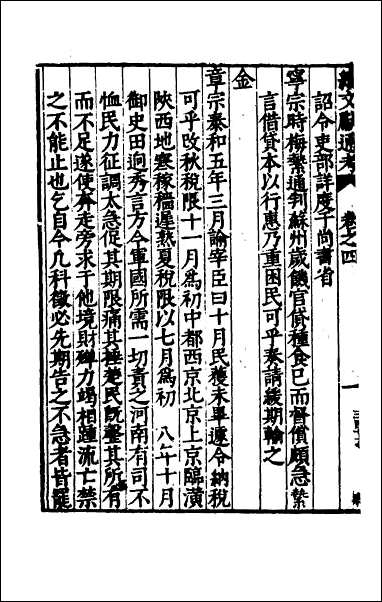 續文獻通考 卷之四 一
詔令吏部詳度于尚書省
寧宗時梅縶通判蘇州歲饑官貸種食已而督償頗急縶
言借貸本以行惠乃重困民可乎奏請緩期輸之
金
章宗泰和五年三月諭宰臣曰十月民穫未畢遽令納稅
可乎改秋稅限十一月爲初中都西京北京上京臨潢
陝西地寒稼穡遲熟夏稅限以七月爲初 八年十月
御史田迥秀言方今軍國所需一切責之河南有司不
恤民力征調太急促其期限痛其棰楚民既罄其所有
而不足遂使奔走旁求于他境財殫力竭相踵流亡禁
之不能止也乞自今凡科徵必先期告之不急者皆罷